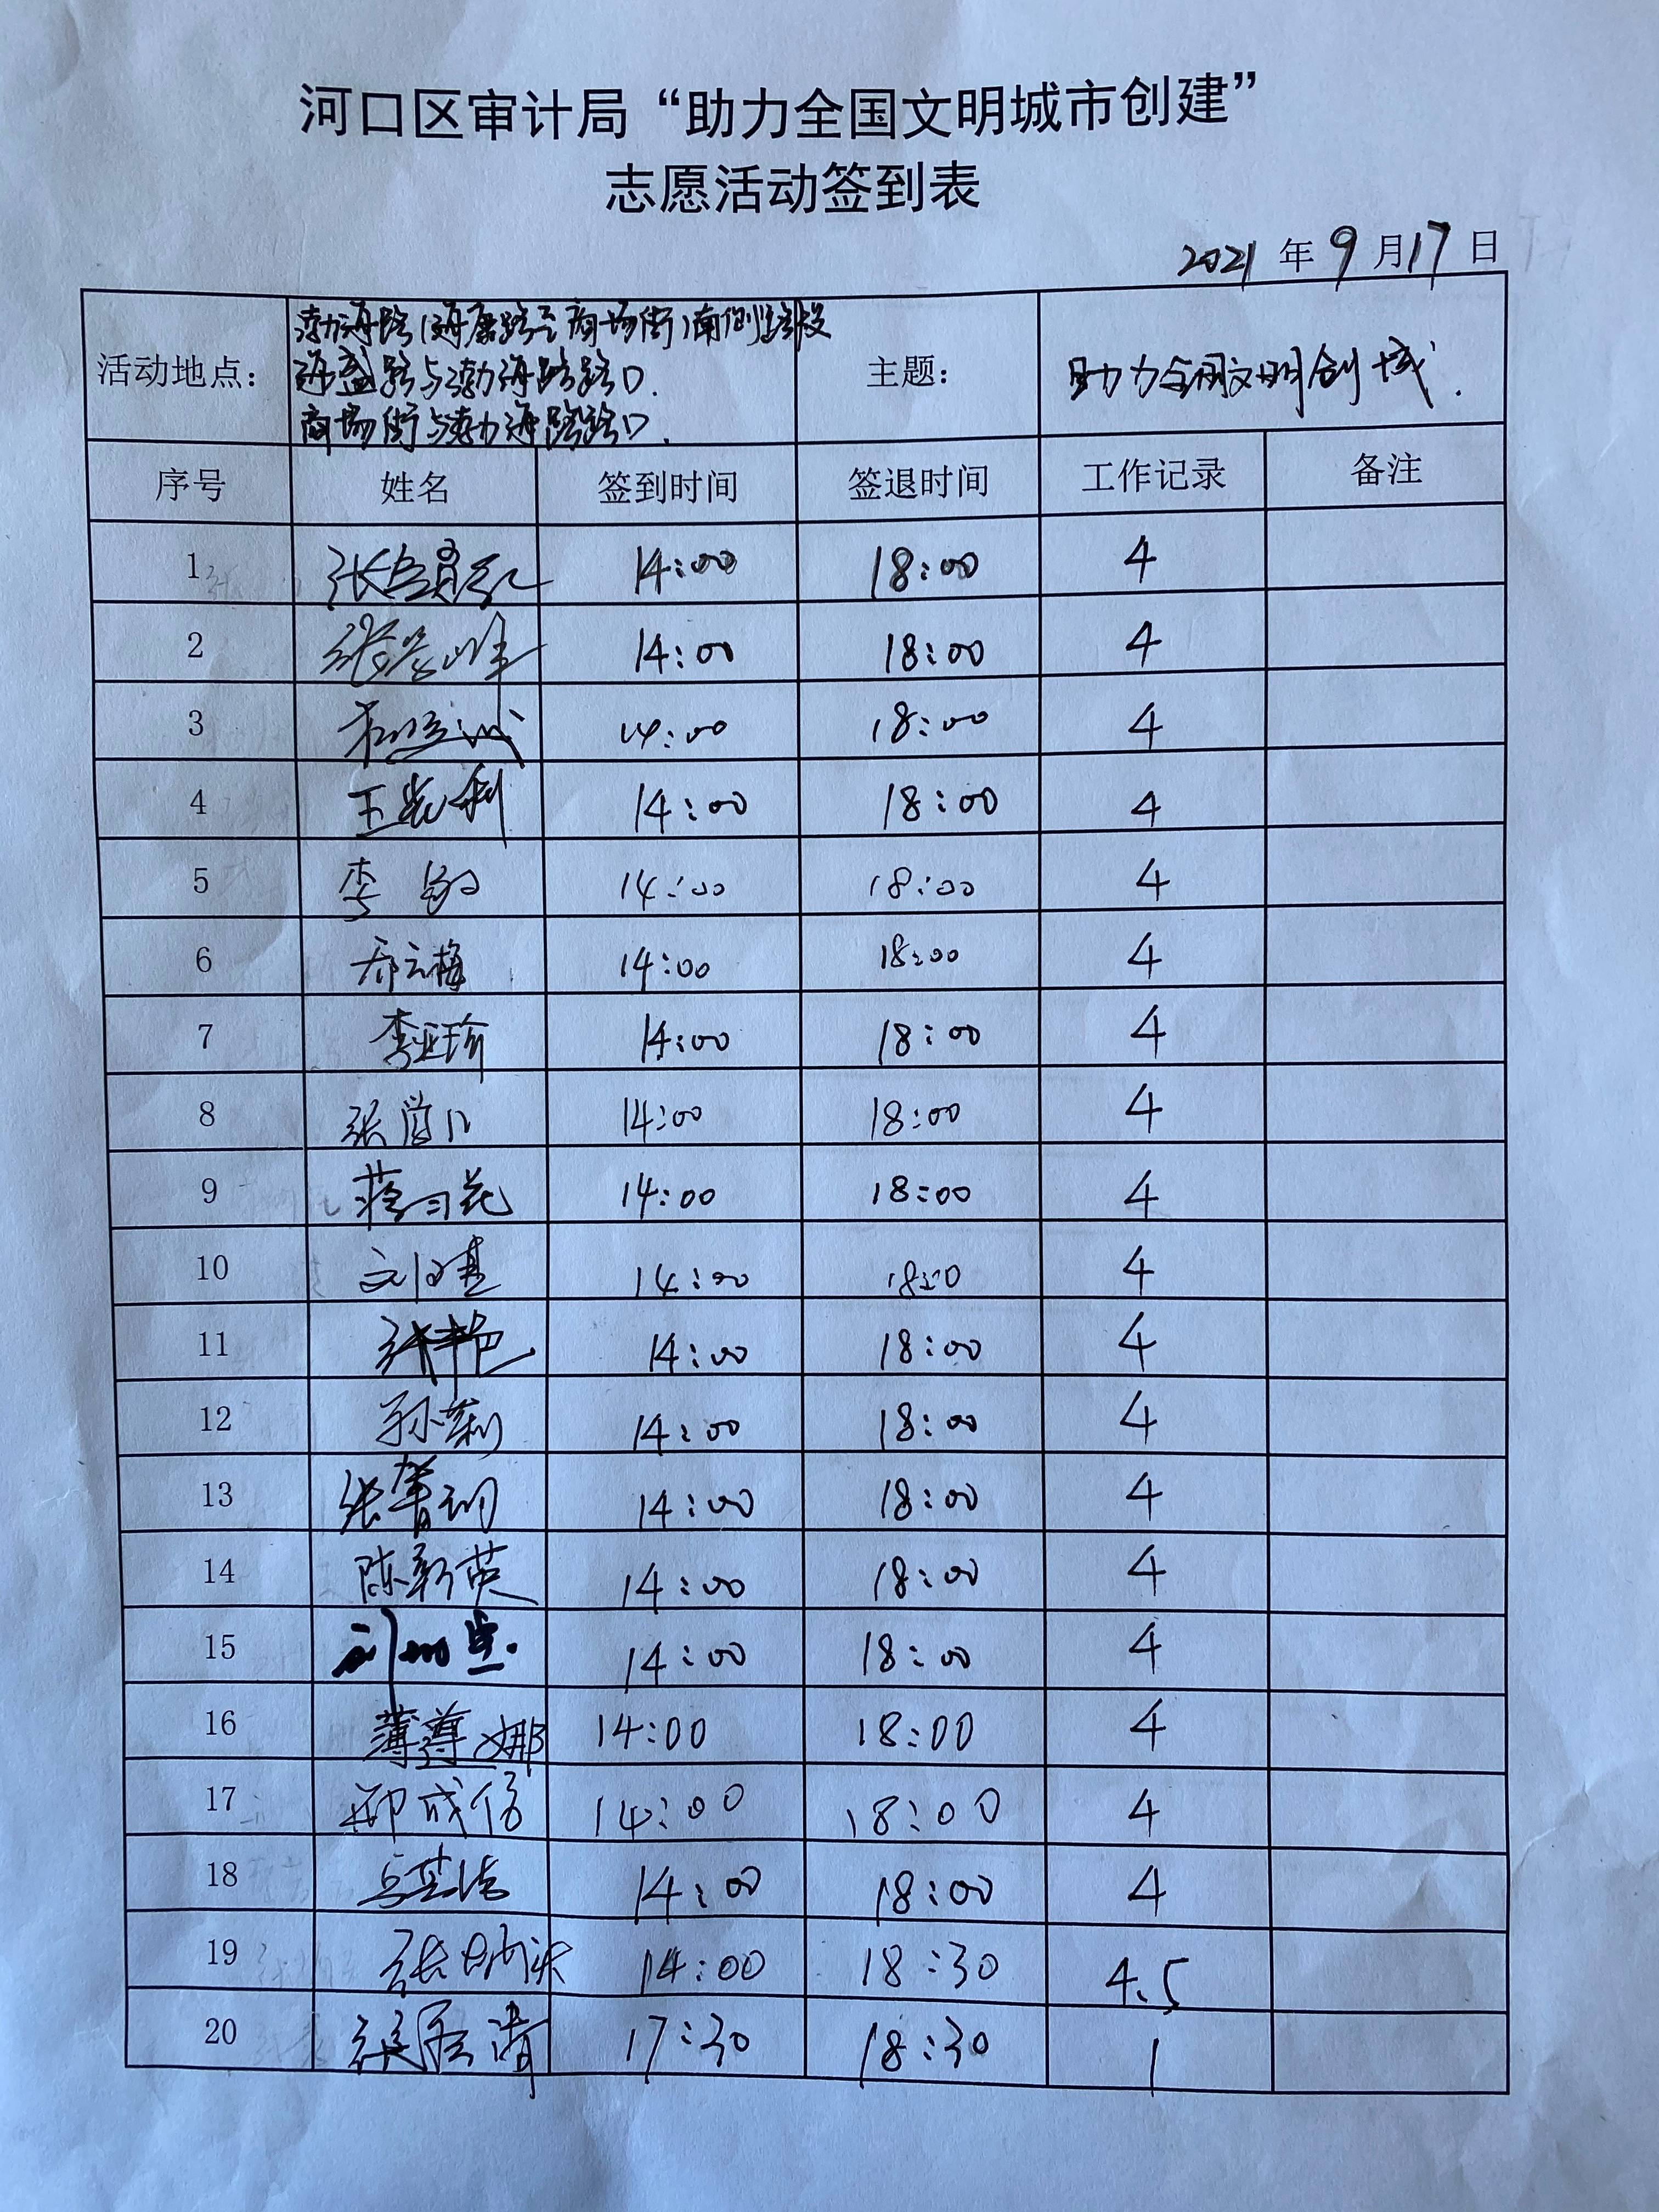 河口区审计局“助力全国文明城市创建”
志愿活动签到表
2021 年 9 月 17 日
活动地点：
渤海路(海康路至商场街)南侧路段
海盛路与渤海路路口.
商场街与渤海路路口.
主题：
助力全国文明创城.
序号 姓名 签到时间 签退时间 工作记录 备注
1 14:00 18:00 4
2 14:00 18:00 4
3 14:00 18:00 4
4 14:00 18:00 4
5 李敏 14:00 18:00 4
6 乔云梅 14:00 18:00 4
7 李亚珍 14:00 18:00 4
8 14:00 18:00 4
9 14:00 18:00 4
10 14:00 18:00 4
11 张艳 14:00 18:00 4
12 孙莉 14:00 18:00 4
13 14:00 18:00 4
14 陈新英 14:00 18:00 4
15 14:00 18:00 4
16 薄尊娜 14:00 18:00 4
17 14:00 18:00 4
18 14:00 18:00 4
19 14:00 18:30 4.5
20 17:30 18:30 1